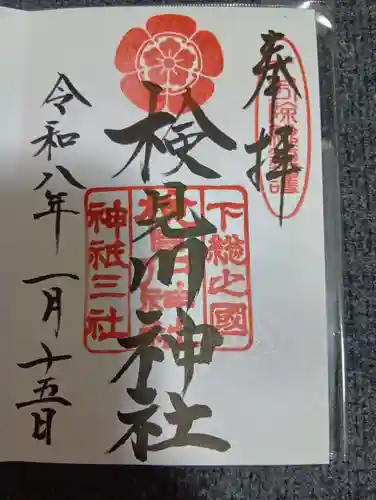 奉拝
下総之國
検見川神社
神祇三社
令和八年一月十五日